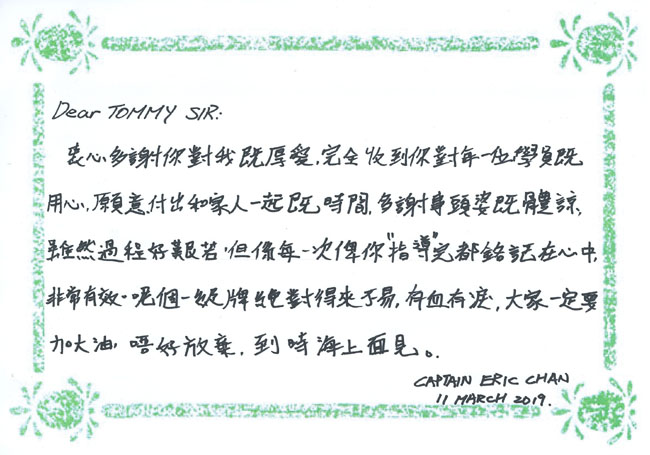 Dear TOMMY SIR:
衷心多謝你對我既厚愛,完全收到你對每一位學員既
用心,願意付出和家人一起既時間,多謝事頭婆既體諒,
雖然過程好艱苦,但係每一次俾你"指導"完都銘記在心中,
非常有效。呢個一級牌絕對得來不易,有血有淚,大家一定要
加大油,唔好放棄,到時海上面見。
CAPTAIN ERIC CHAN
11 MARCH 2019.